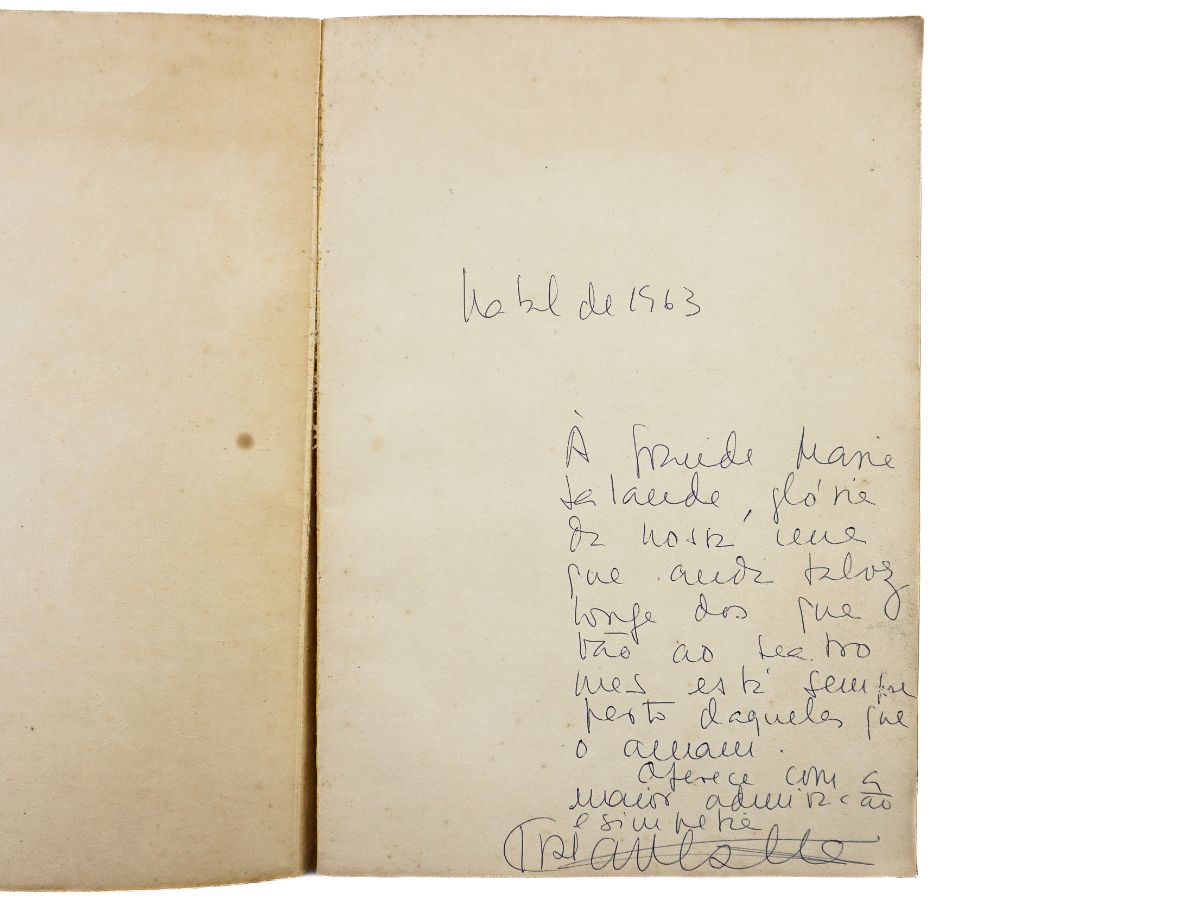 Natal de 1963
À grande Maria
Lalande, glória
da nossa cena
que anda talvez
longe dos que
vão ao teatro
mas está sempre
perto daqueles que
o amam.
Oferece com a
maior admiração
e simpatia